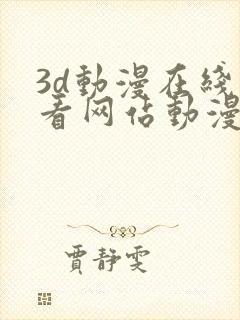 3d動漫在綫
看网佔動漫
賈靜雯